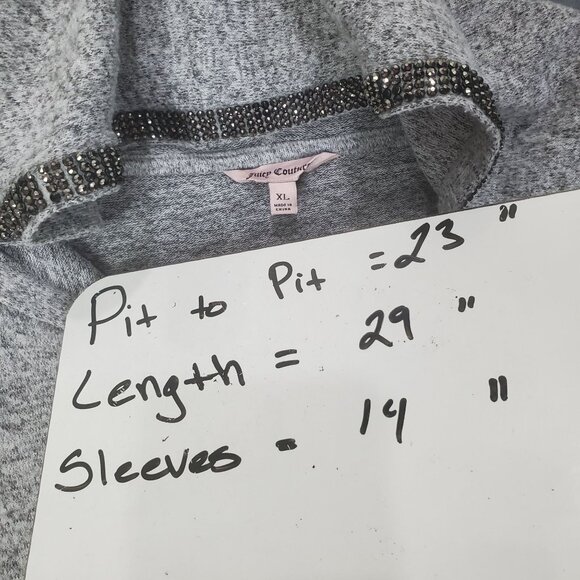 Juicy Couture
XL
MADE IN
CHINA
Pit to Pit = 23 "
Length = 29 "
Sleeves - 14 "